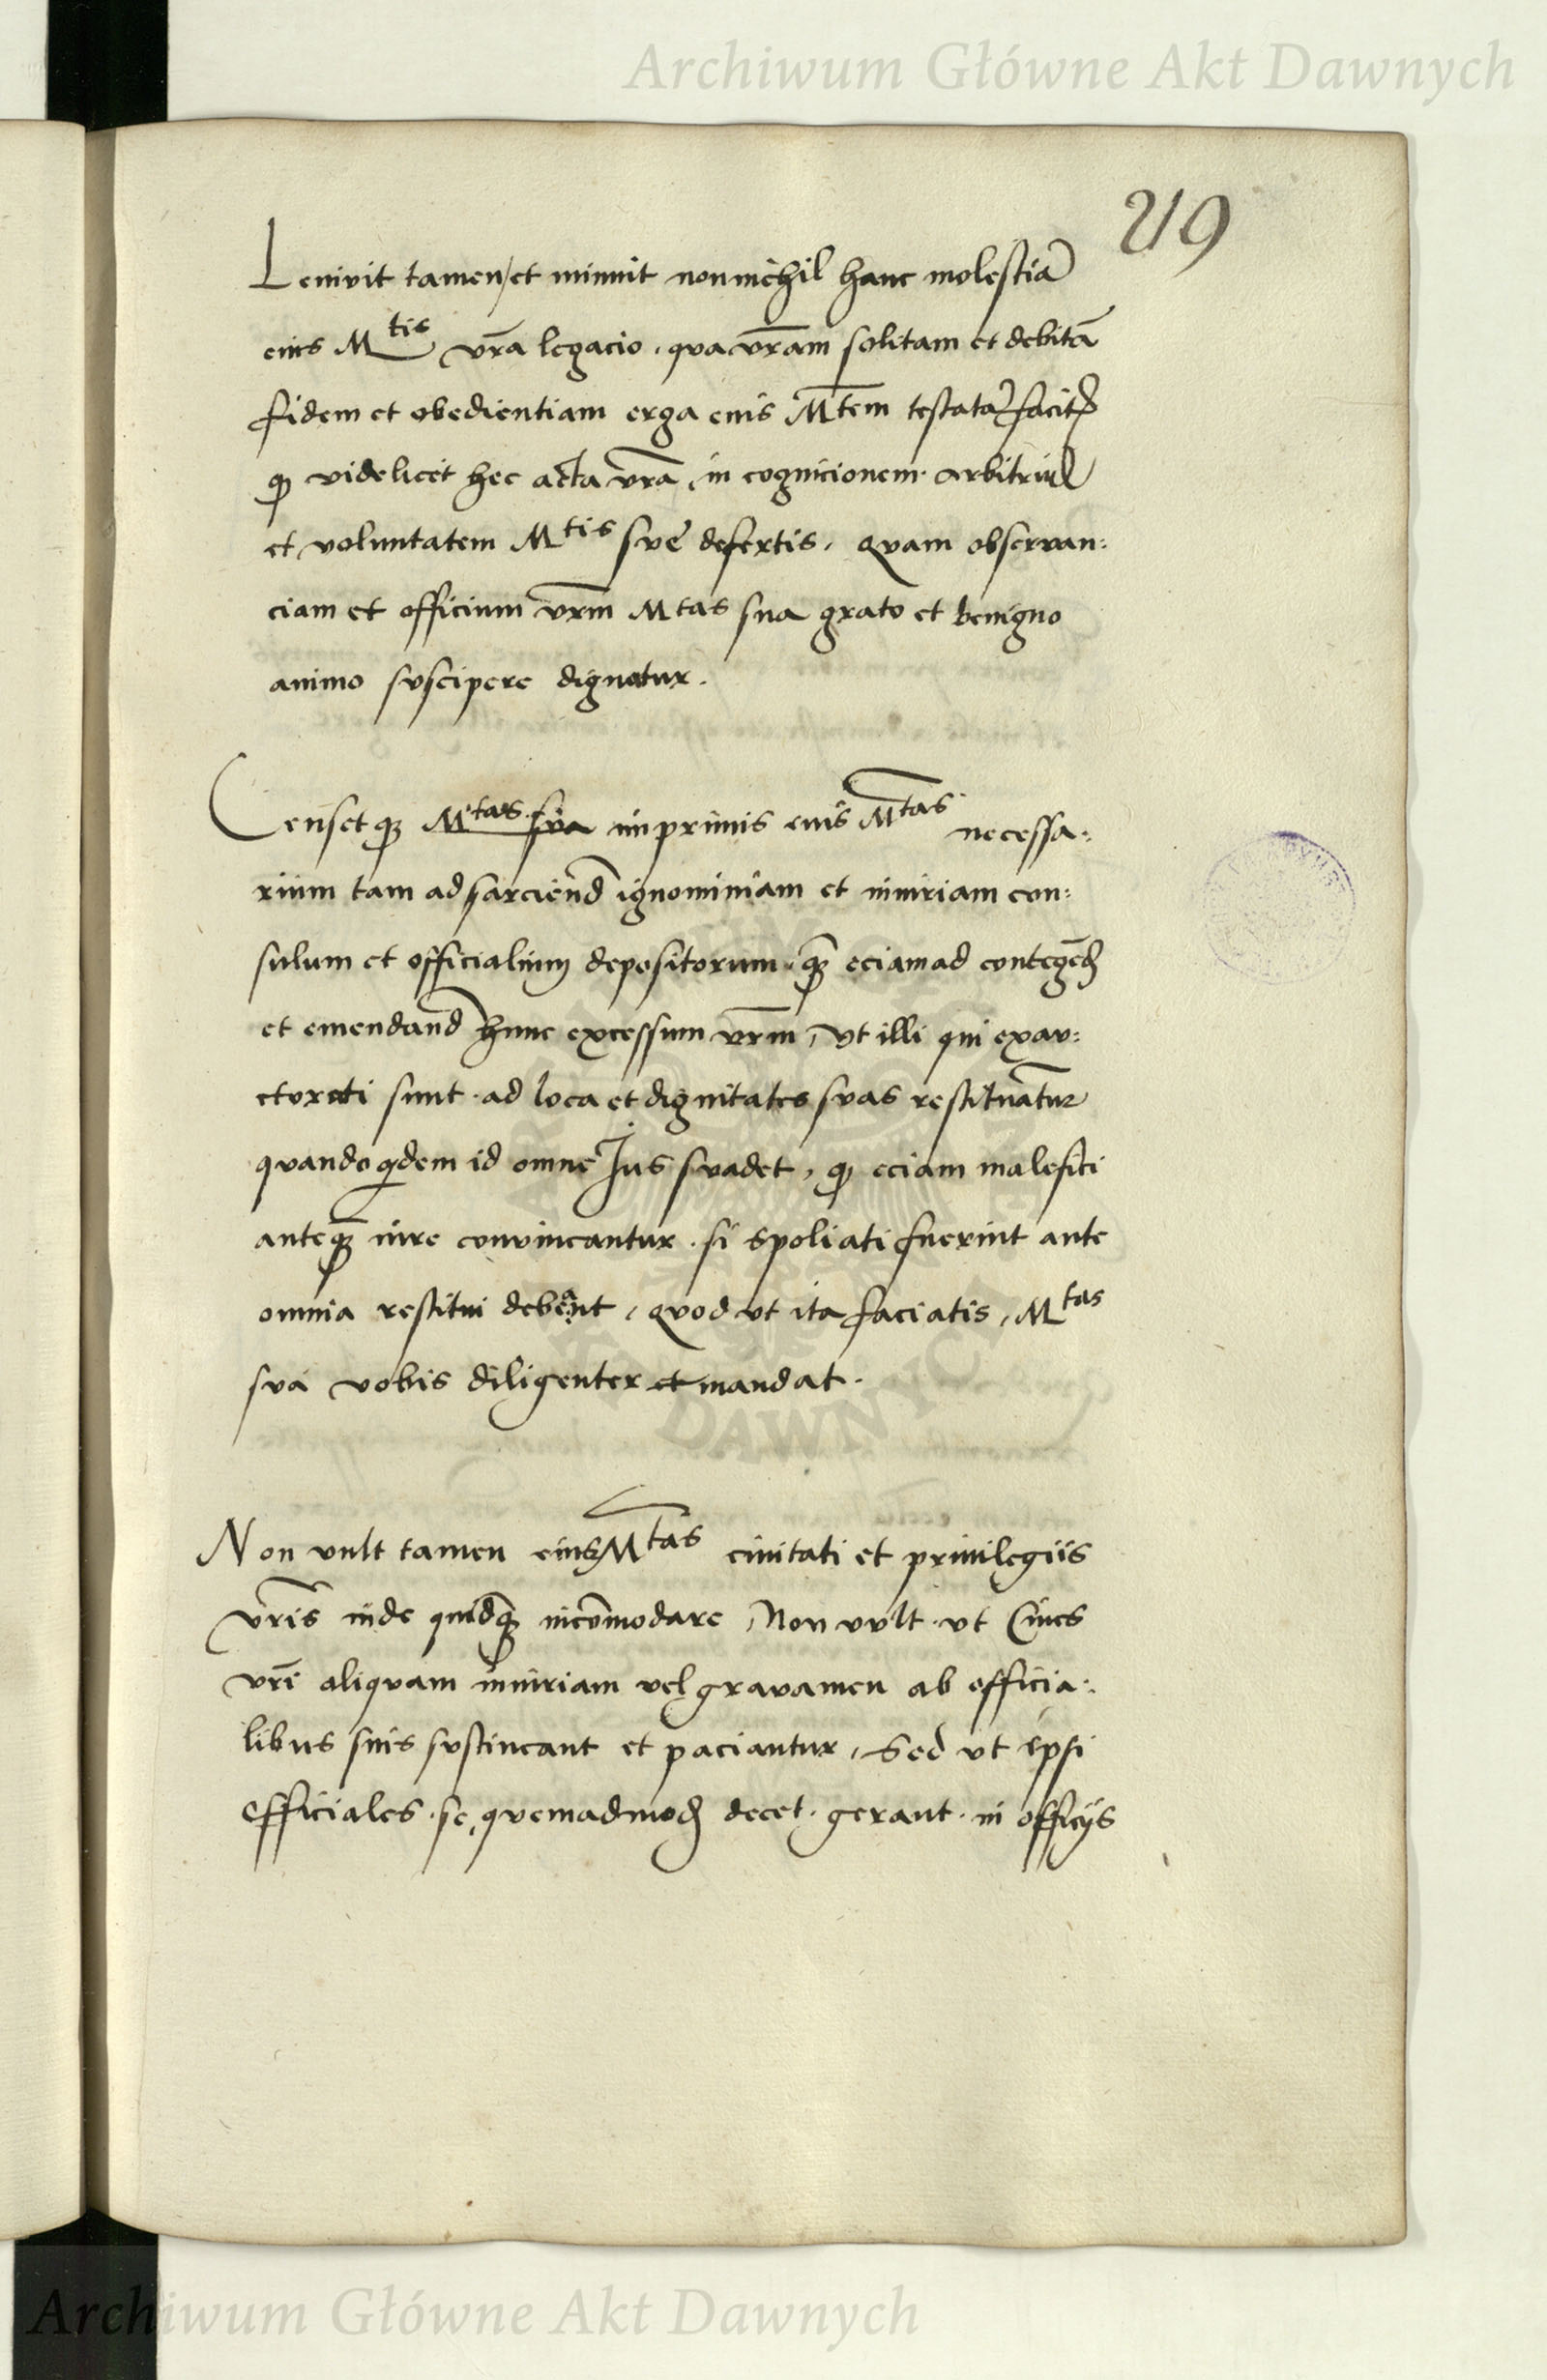 Archiwum Główne Akt Dawnych
219
Lenivit tamen, et minuit nonnichil hanc molestiã
eius Mtis vr̃a legacio, qua vr̃am solitam et debitã
fidem et obedientiam erga eius Mtem testatã facitis
qꝫ videlicet hec acta vr̃a, in cognicionem arbitriũ
et voluntatem Mtis sue defertis, Quam observan:
ciam et officium vr̃m Mtas sua grato et benigno
animo suscipere dignatur.
Censet qꝫ Mtas sua imprimis eius Mtas necessa:
rium tam ad sarciend ignominiam et iniuriam con:
sulum et officialium depositorum, qꝫ eciam ad contegend
et emendand hunc excessum vr̃m, vt illi qui exau:
ctorati sunt ad loca et dignitates suas restituãtur
quandoqdem id omne Ius suadet, qꝫ eciam malefici
anteqꝫ iure convincantur si spoliati fuerint ante
omnia restitui debeant, quod vt ita faciatis, Mtas
sua vobis diligenter et mandat.
Non vult tamen eius Mtas civitati et privilegiis
vr̃is inde quidqꝫ incõmodare, Non vult vt Cives
vr̃i aliquam iniuriam vel gravamen ab officia:
libus suis sustineant et paciantur, Sed vt ipsi
officiales se, quemadmod decet gerant in officijs
DAWNYCH
Archiwum Główne Akt Dawnych